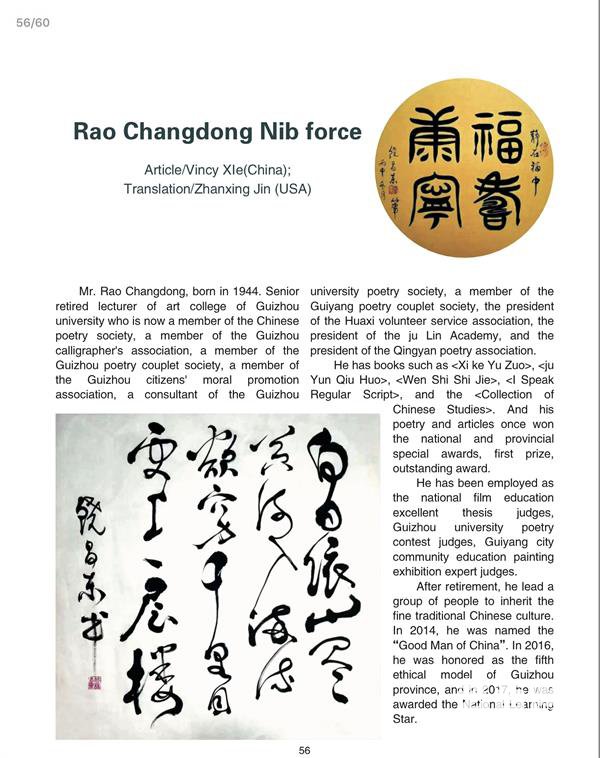 56/60
Rao Changdong Nib force
Article/Vincy XIe(China);
Translation/Zhanxing Jin (USA)
福壽
康寧
饒昌東
Mr. Rao Changdong, born in 1944. Senior
retired lecturer of art college of Guizhou
university who is now a member of the Chinese
poetry society, a member of the Guizhou
calligrapher's association, a member of the
Guizhou poetry couplet society, a member of
the Guizhou citizens' moral promotion
association, a consultant of the Guizhou
university poetry society, a member of the
Guiyang poetry couplet society, the president
of the Huaxi volunteer service association, the
president of the ju Lin Academy, and the
president of the Qingyan poetry association.
He has books such as <Xi ke Yu Zuo>, <ju
Yun Qiu Huo>, <Wen Shi Shi Jie>, <I Speak
Regular Script>, and the <Collection of
Chinese Studies>. And his
poetry and articles once won
the national and provincial
special awards, first prize,
outstanding award.
He has been employed as
the national film education
excellent thesis judges,
Guizhou university poetry
contest judges, Guiyang city
community education painting
exhibition expert judges.
After retirement, he lead a
group of people to inherit the
fine traditional Chinese culture.
In 2014, he was named the
“Good Man of China”. In 2016,
he was honored as the fifth
ethical model of Guizhou
province, and in 2017, he was
awarded the National Learning
Star.
白日依山盡
黃河入海流
欲窮千里目
更上一層樓
饒昌東书
56